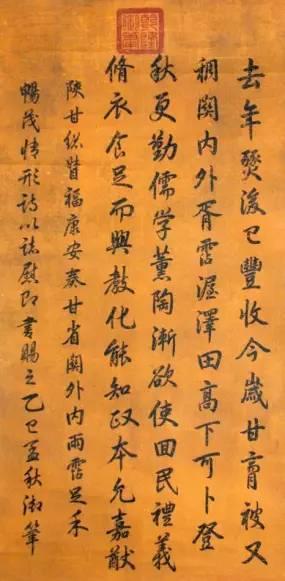 去年燹後已豐收今歲甘膏被又
稠關内外胥霑渥澤田高下可卜登
秋更勤儒学薰陶漸欲使回民禮義
脩衣食足而興教化能知政本允嘉猷
陝甘総督福康安奏甘省關外内雨霑足禾
暢茂情形詩以誌慰即書賜之乙巳孟秋御筆